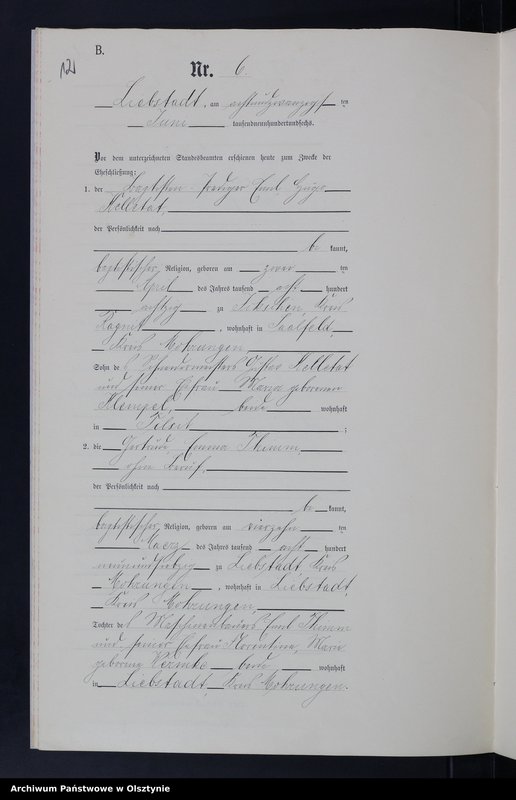 B.
121
Nr. 6.
Liebstadt, am achtundzwanzigs ten
Juni tausendneunhundertundsechs.
Vor dem unterzeichneten Standesbeamten erschienen heute zum Zwecke der
Eheschließung:
1. der Baptisten-Prediger Emil Hugo
Nelletat,
der Persönlichkeit nach
be kannt,
baptistischer Religion, geboren am zwei ten
April des Jahres tausend acht hundert
achtzig zu Kreis
Ragnit, wohnhaft in Saalfeld,
Kreis Mohrungen,
Sohn des Schneidermeisters Gustav Nelletat
und seiner Ehefrau Maria geborenen
Klempel, beide wohnhaft
in Tilsit ;
2. die Gertrude Emma Thimm,
ohne Beruf,
der Persönlichkeit nach
be kannt,
baptistischer Religion, geboren am vierzehn ten
Maerz des Jahres tausend acht hundert
zu Liebstadt Kreis
Mohrungen, wohnhaft in Liebstadt,
Kreis Mohrungen,
Tochter des Maschinenbauers Emil Thimm
und seiner Ehefrau Florentine, Maria
geborene beide wohnhaft
in Liebstadt, Kreis Mohrungen.
Archiwum Państwowe w Olsztynie